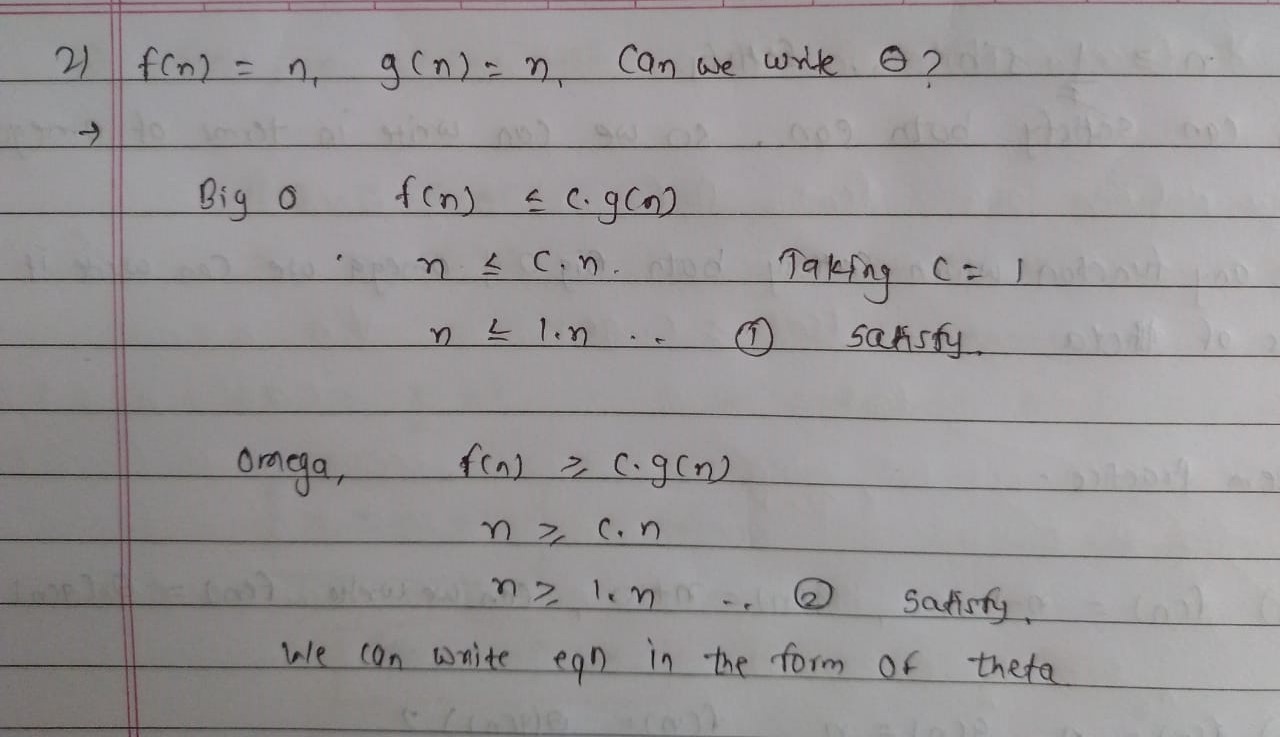 2) f(n) = n, g(n) = n, Can we write θ?
→
Big O f(n) ≤ c.g(n)
n ≤ c.n. Taking c = 1
n ≤ 1.n .. ① satisfy.
Omega, f(n) ≥ c.g(n)
n ≥ c.n
n ≥ 1.n .. ② satisfy.
We can write eqn in the form of theta